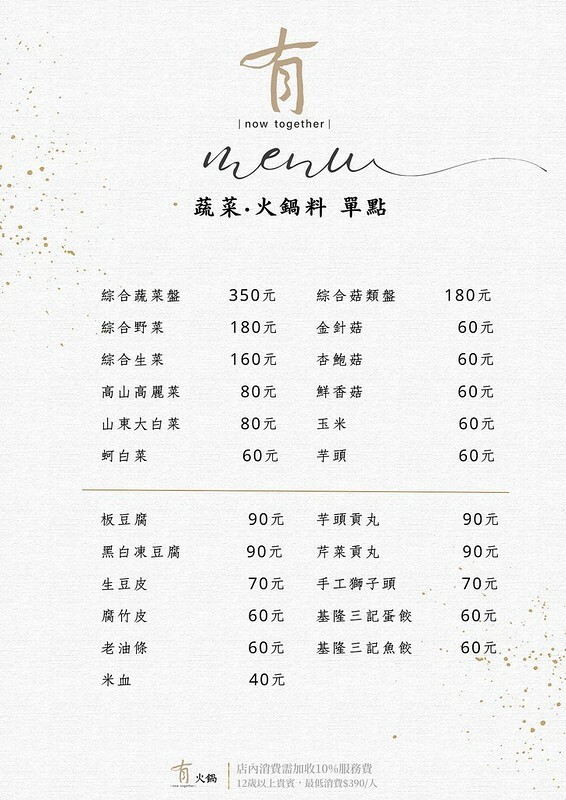 有
|now together|
menu
蔬菜·火鍋料 單點
綜合蔬菜盤 350元 綜合菇類盤 180元
綜合野菜 180元 金針菇 60元
綜合生菜 160元 杏鮑菇 60元
高山高麗菜 80元 鮮香菇 60元
山東大白菜 80元 玉米 60元
蚵白菜 60元 芋頭 60元
板豆腐 90元 芋頭貢丸 90元
黑白凍豆腐 90元 芹菜貢丸 90元
生豆皮 70元 手工獅子頭 70元
腐竹皮 60元 基隆三記蛋餃 60元
老油條 60元 基隆三記魚餃 60元
米血 40元
有 火鍋
|now together|
店內消費需加收10%服務費
12歲以上貴賓，最低消費$390/人